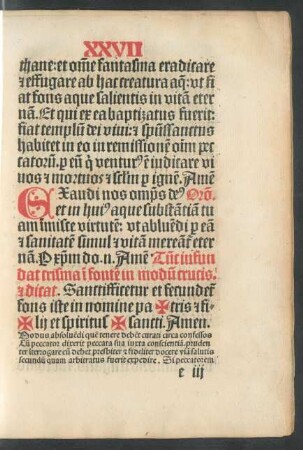 XXVII
thane: et om̄e fantasma eradicare
⁊ effugare ab hac creatura aq̄: vt fi
at fons aque salientis in vitā eter
nā. Et qui ex ea baptizatus fuerit:
fiat templū dei viui: ⁊ sp̄ussanctus
habitet in eo in remissionē oīm pec
catorū. ꝑ eū q̄ ventur⁹ ē iudicare vi
uos ⁊ mortuos ⁊ sclm ꝑ ignē. Amē
EXaudi nos omp̄s de⁹ Orō.
et in hui⁹ aque substātiā tu
am imitte virtutē: vt abluēdi ꝑ eā
⁊ sanitatē simul ⁊ vitā mereāt̄ eter
nā. P xp̄m do. n. Amē Tūc infun
dat crisma ī fonte in modū crucis.
⁊ dicat. Sanctificetur et fecundet̄
fons iste in nomine pa ✠ tris ⁊ fi
✠ lij et spiritus ✠ sancti. Amen.
Modus absoluēdi quē tenere debēt curati circa confessos
Cū peccator dixerit peccata sua iuxta conscientiā. pruden
ter īterrogare eū debet presbiter ⁊ fideliter docere viā salutis
secundū quam arbitratus fuerit expedire. Si peccatorem
e iij